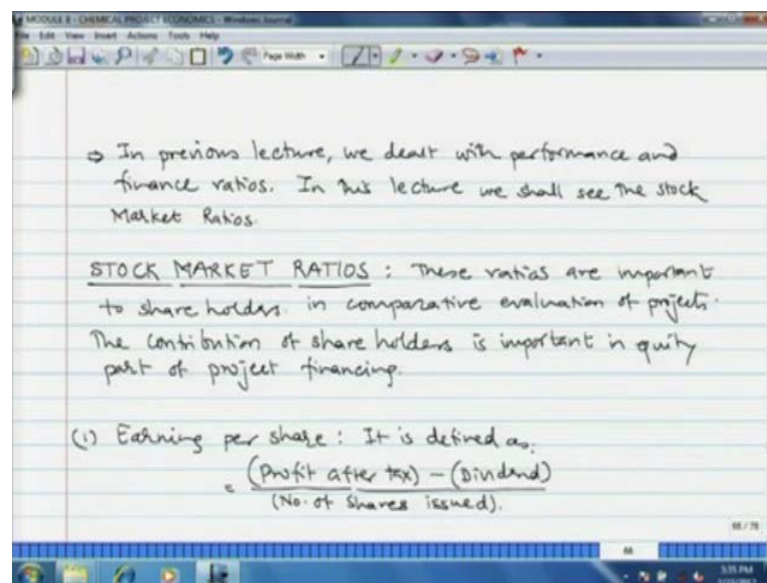 MODULE 8 - CHEMICAL PROJECT ECONOMICS - Windows Journal
File Edit View Insert Actions Tools Help
Page Width
⇒ In previous lecture, we dealt with performance and
finance ratios. In this lecture we shall see the stock
Market Ratios.
STOCK MARKET RATIOS : These ratios are important
to share holders in comparative evaluation of projects.
The contribution of share holders is important in equity
part of project financing.
(1) Earning per share : It is defined as.
= (Profit after tax) - (Dividend)
(No. of shares issued).
68 / 70
68
5:35 PM